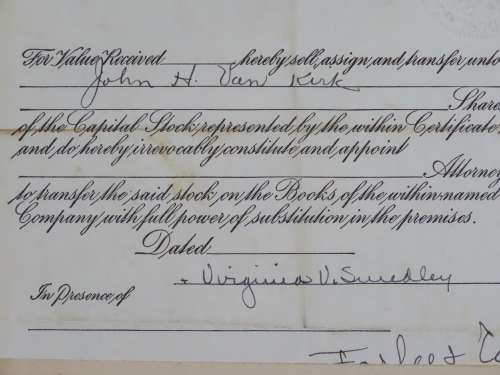 For Value Received hereby sell, assign and transfer unto
John H. Van Kirk
Share
of the Capital Stock represented by the within Certificate
and do hereby irrevocably constitute and appoint
Attorney
to transfer the said stock on the Books of the within-named
Company with full power of substitution in the premises.
Dated
Virginia V. Smedley
In Presence of